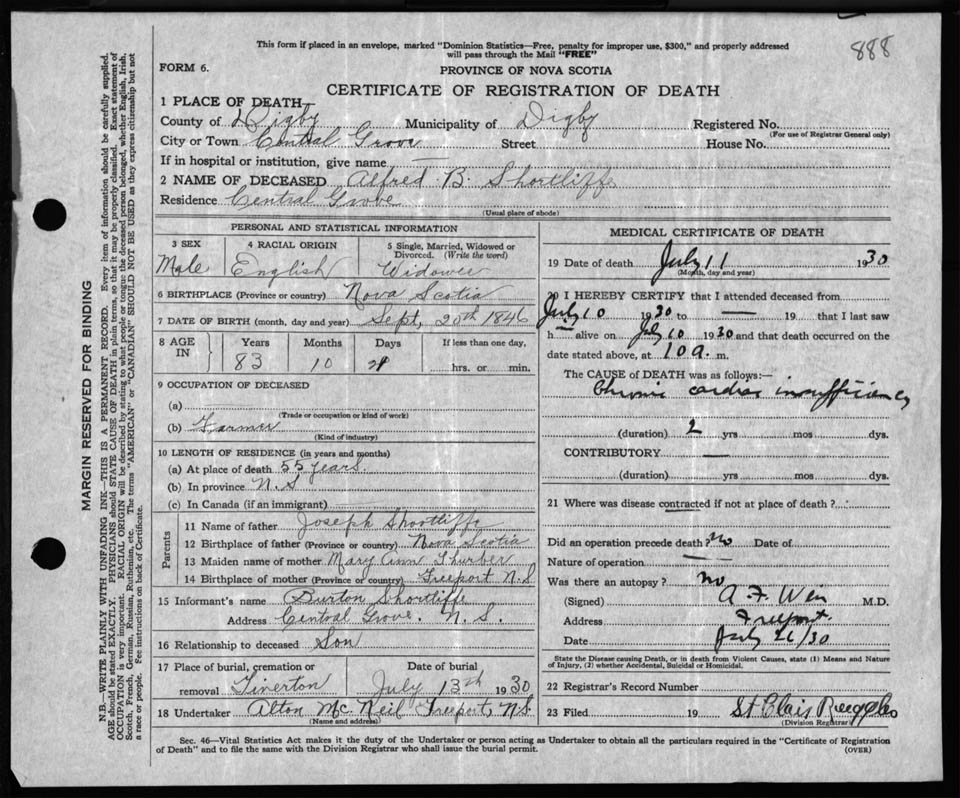 This form if placed in an envelope, marked "Dominion Statistics—Free, penalty for improper use, $300," and properly addressed
will pass through the Mail "FREE"
888
FORM 6.
PROVINCE OF NOVA SCOTIA
CERTIFICATE OF REGISTRATION OF DEATH
1 PLACE OF DEATH—
County of Digby Municipality of Digby Registered No.
(For use of Registrar General only)
City or Town Central Grove Street House No.
If in hospital or institution, give name —
2 NAME OF DECEASED Alfred B. Shortliffe
Residence Central Grove
(Usual place of abode)
PERSONAL AND STATISTICAL INFORMATION
3 SEX 4 RACIAL ORIGIN 5 Single, Married, Widowed or
Divorced. (Write the word)
Male English Widower
6 BIRTHPLACE (Province or country) Nova Scotia
7 DATE OF BIRTH (month, day and year) Sept, 20th 1846
8 AGE IN Years Months Days If less than one day,
83 10 hrs. or min.
9 OCCUPATION OF DECEASED
(a)
(Trade or occupation or kind of work)
(b) Farmer
(Kind of industry)
10 LENGTH OF RESIDENCE (in years and months)
(a) At place of death 55 years.
(b) In province N.S
(c) In Canada (if an immigrant)
Parents
11 Name of father Joseph Shortliffe
12 Birthplace of father (Province or country) Nova Scotia
13 Maiden name of mother Mary Ann Thurber
14 Birthplace of mother (Province or country) Freeport N.S
15 Informant's name Burton Shortliffe
Address Central Grove. N.S.
16 Relationship to deceased Son
17 Place of burial, cremation or Date of burial
removal Tiverton July 13th 1930
18 Undertaker Alton McNeil Freeport, N.S.
(Name and address)
MEDICAL CERTIFICATE OF DEATH
19 Date of death July 11 1930
(Month, day and year)
20 I HEREBY CERTIFY that I attended deceased from
July 10 1930 to — 19 that I last saw
h — alive on July 10 1930 and that death occurred on the
date stated above, at 10 a. m.
The CAUSE of DEATH was as follows:—
Chronic cardiac insufficiency
(duration) 2 yrs mos dys.
CONTRIBUTORY —
(duration) yrs mos dys.
21 Where was disease contracted if not at place of death ?
Did an operation precede death? no Date of
Nature of operation —
Was there an autopsy ? no
(Signed) A. F. Weir M.D.
Address Freeport
Date July 26/30
State the Disease causing Death, or in Death from Violent Causes, state (1) Means and Nature
of Injury, (2) whether Accidental, Suicidal or Homicidal.
22 Registrar's Record Number
23 Filed 19 St Clair Ruggles
(Division Registrar)
Sec. 46—Vital Statistics Act makes it the duty of the Undertaker or person acting as Undertaker to obtain all the particulars required in the "Certificate of Registration
of Death" and to file the same with the Division Registrar who shall issue the burial permit.
(OVER)
MARGIN RESERVED FOR BINDING
N.B.—WRITE PLAINLY WITH UNFADING INK—THIS IS A PERMANENT RECORD. Every item of information should be carefully supplied.
AGE should be stated EXACTLY. PHYSICIANS should STATE CAUSE OF DEATH in plain terms, so that it may be properly classified. Exact statement of
OCCUPATION is very important. RACIAL ORIGIN will be described by stating to what people or tongue the deceased person belonged, whether English, Irish,
Scotch, French, German, Russian, Ruthenian, etc. The terms "AMERICAN" or "CANADIAN" SHOULD NOT BE USED as they express citizenship but not
a race or people. See instructions on back of Certificate.